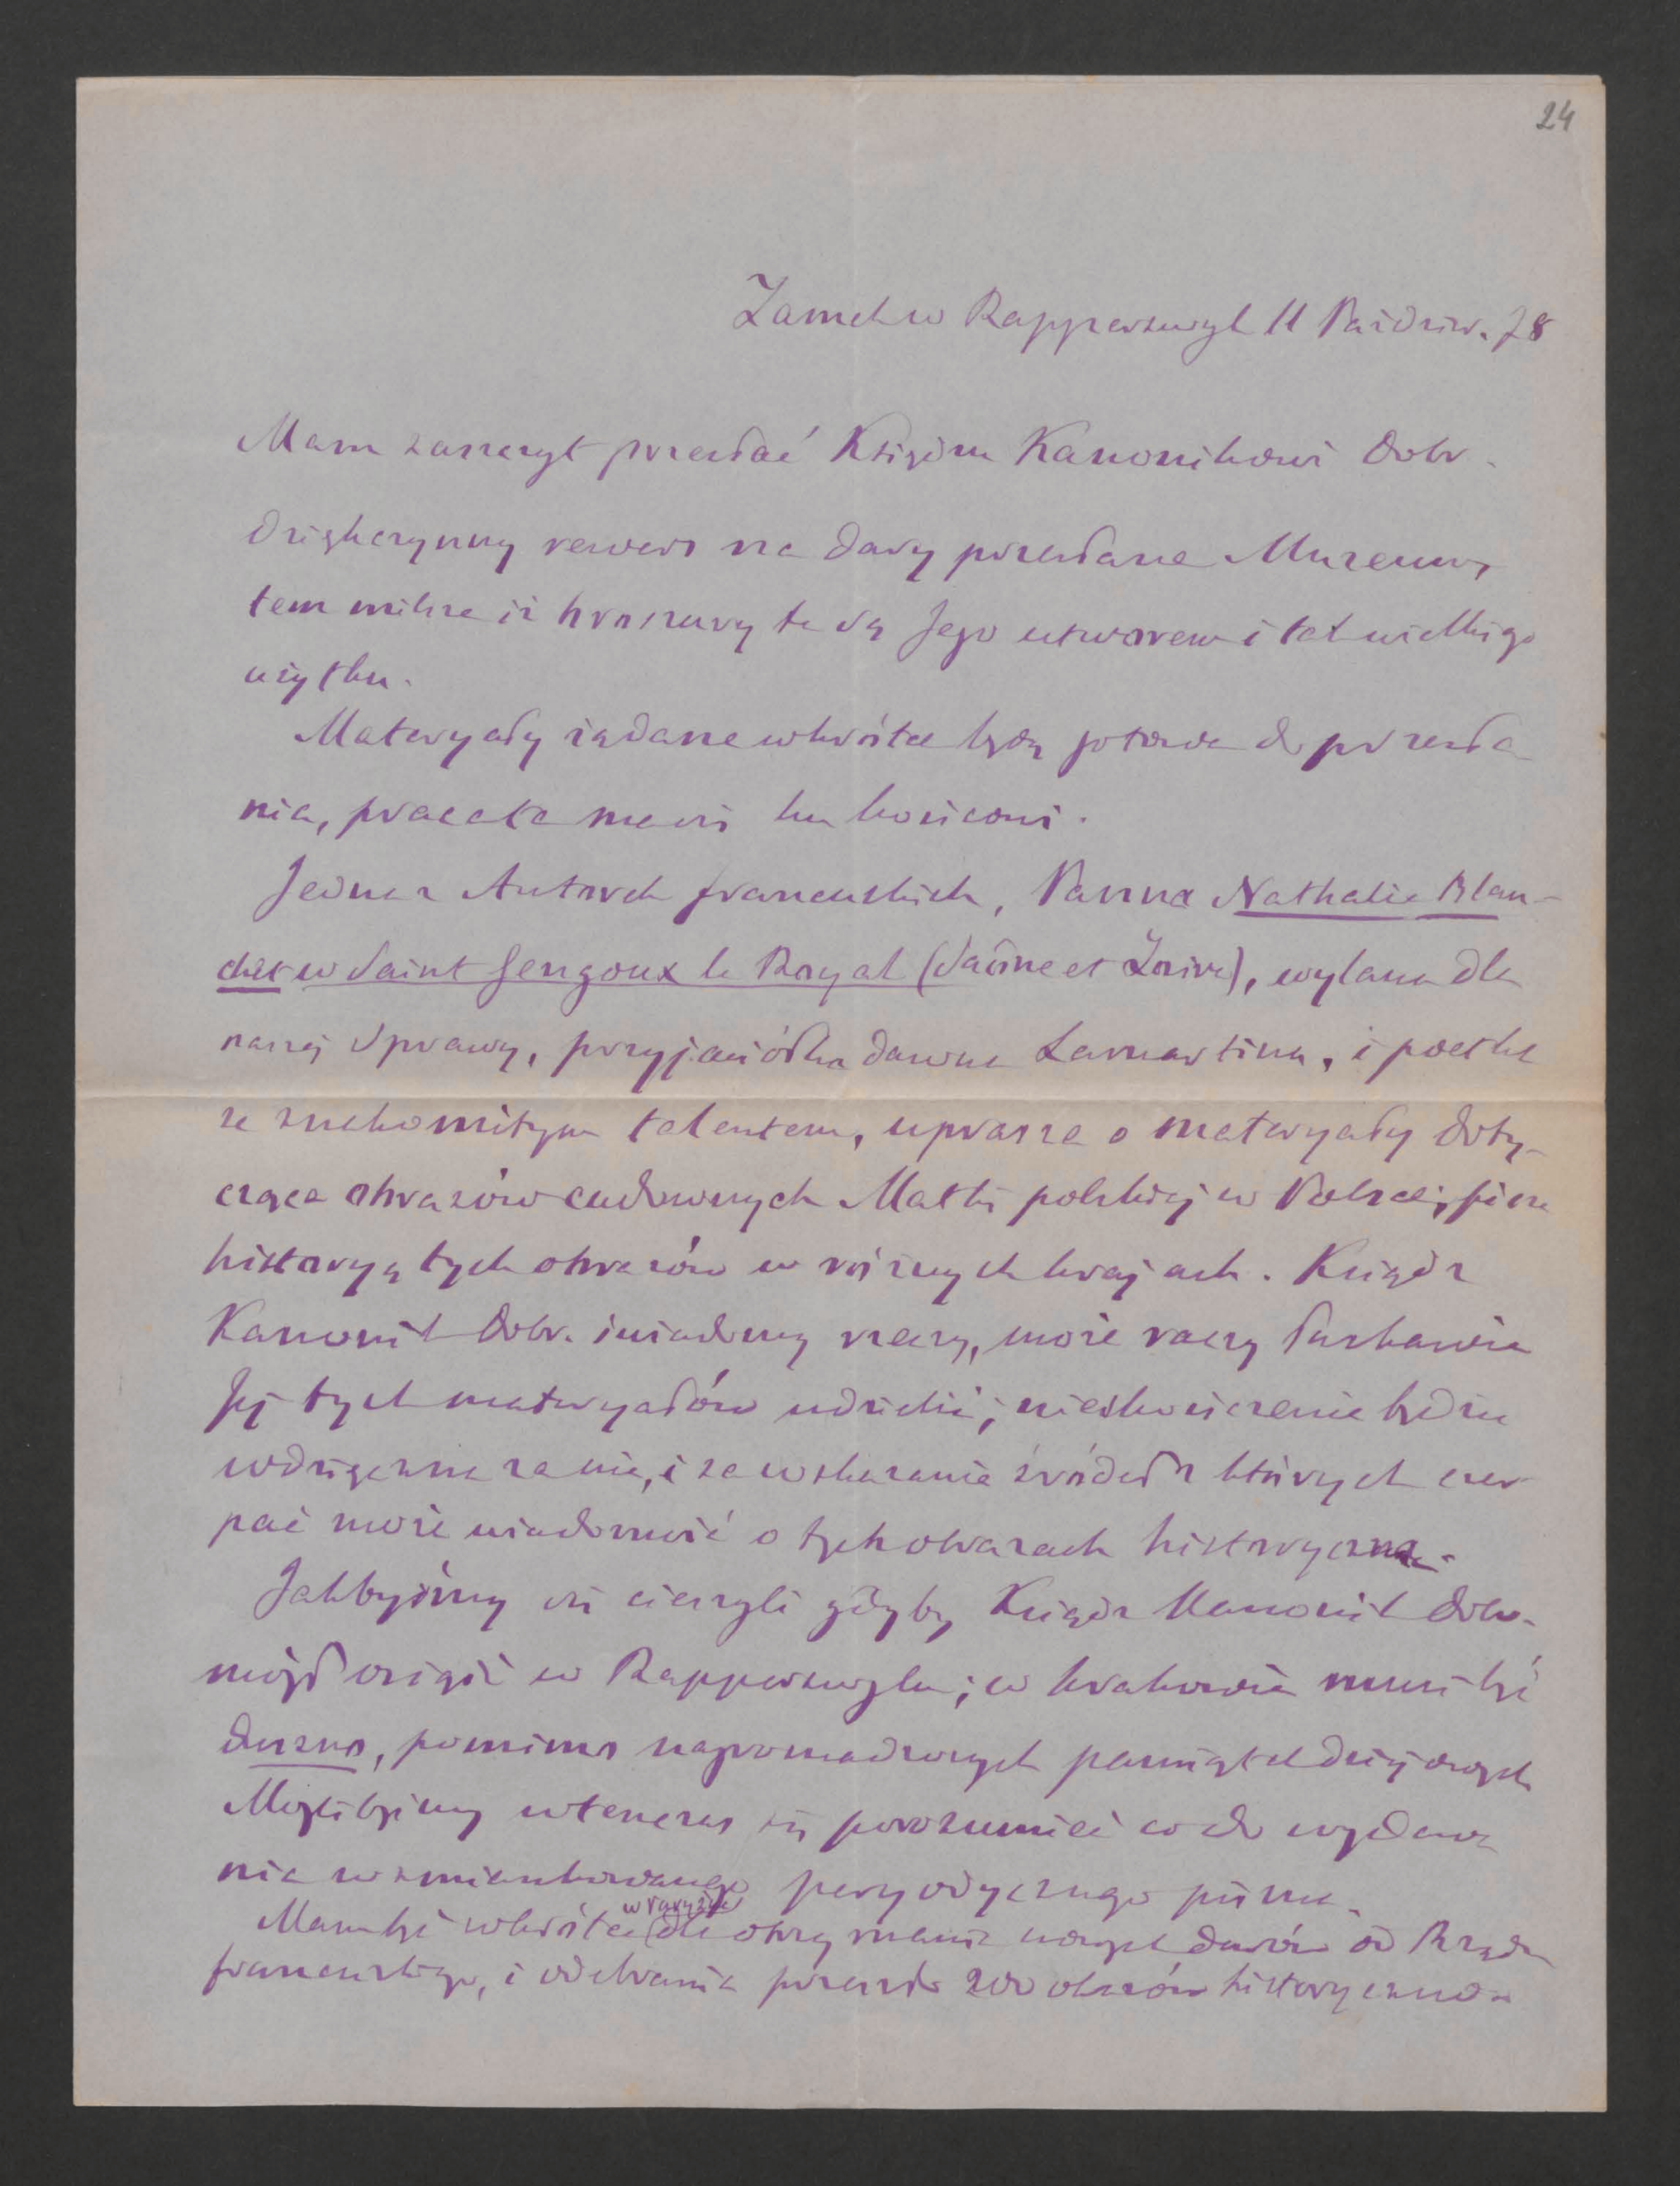 24
Zamek w Rapperswyl 11 Paździer. 78
Mam zaszczyt przesłać Księdzu Kanonikowi Dobr.
dziękczynny rewers na dary przesłane Muzeum,
tem milsze iż broszury te są Jego utworem i tak wielkiego
użytku.
Materyały żądane wkrótce będą gotowe do przesła-
nia, praca ta ma się ku końcowi.
Jedna z Autorek francuskich, Panna Nathalie Blan-
chet w Saint Gengoux le Royal (Saône et Loire), wylana dla
naszej Sprawy, przyjaciółka dawna Lamartina, i poetka
ze znakomitym talentem, uprasza o materyały doty-
czące obrazów cudownych Matki polskiej w Polsce; pisze
historyą tych obrazów w różnych krajach. Ksiądz
Kanonik Dobr. świadomy rzeczy, może raczy łaskawie
Jej tych materyałów udzielić; nieskończenie będzie
wdzięczna za nie, i za wskazanie źródeł z których czer-
pać może wiadomość o tych obrazach historyczną.
Jakbyśmy się cieszyli gdyby Ksiądz Kanonik Dobr.
mógł osiąść w Rapperswylu; w Krakowie musi być
duszno, pomimo nagromadzonych pamiątek dziejowych
Moglibyśmy wtenczas się porozumieć co do wydawa
nia wzmiankowanego peryodycznego pisma.
w Paryżu
Mam być wkrótce (dla otrzymania nowych darów od Rządu
francuskiego, i odebrania przeszło 200 obrazów historyczno-